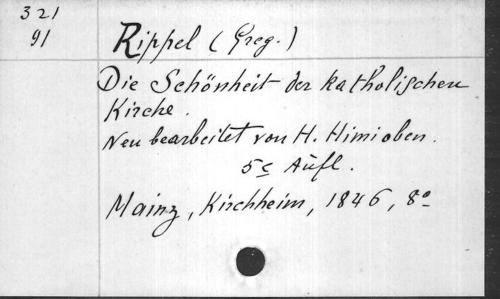 321
91
Rippel (Greg.)
Die Schönheit der katholischen
Kirche.
Neu bearbeitet von H. Himioben.
5e Aufl.
Mainz, Kirchheim, 1846, 8o